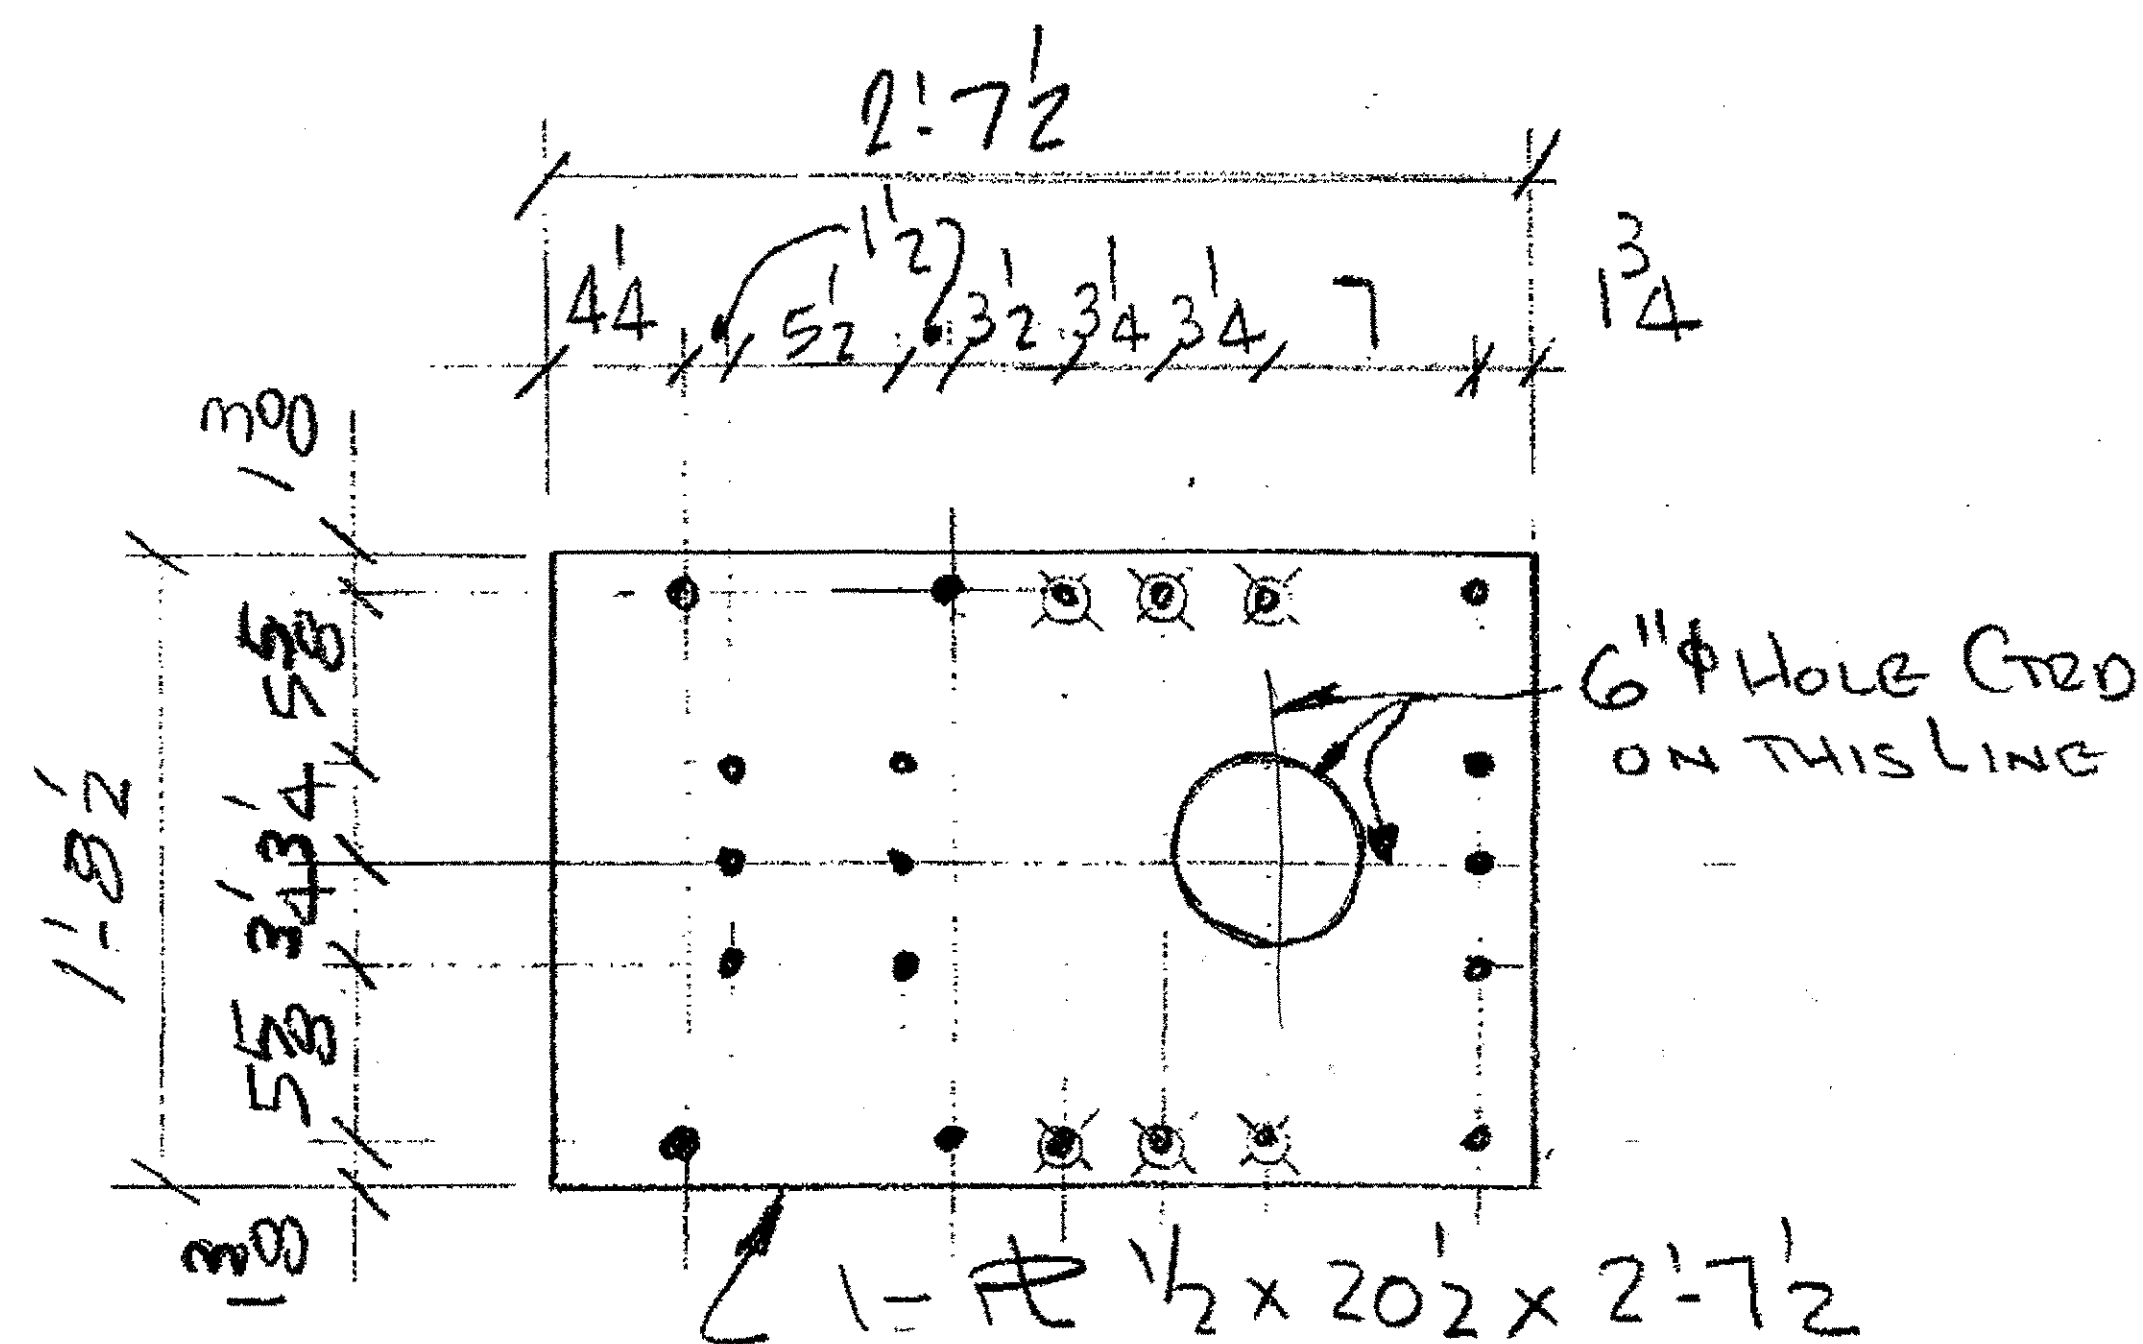 2'-7 1/2
4 1/4 1 1/2 5 1/2 3 1/2 3 1/4 3 1/4 7 1 3/4
1 3/8
5 5/8
3 1/4
3 1/4
5 5/8
1 3/8
1'-8 1/2
6"φ HOLE CTRD
ON THIS LINE
1-PL 1/2 x 20 1/2 x 2'-7 1/2